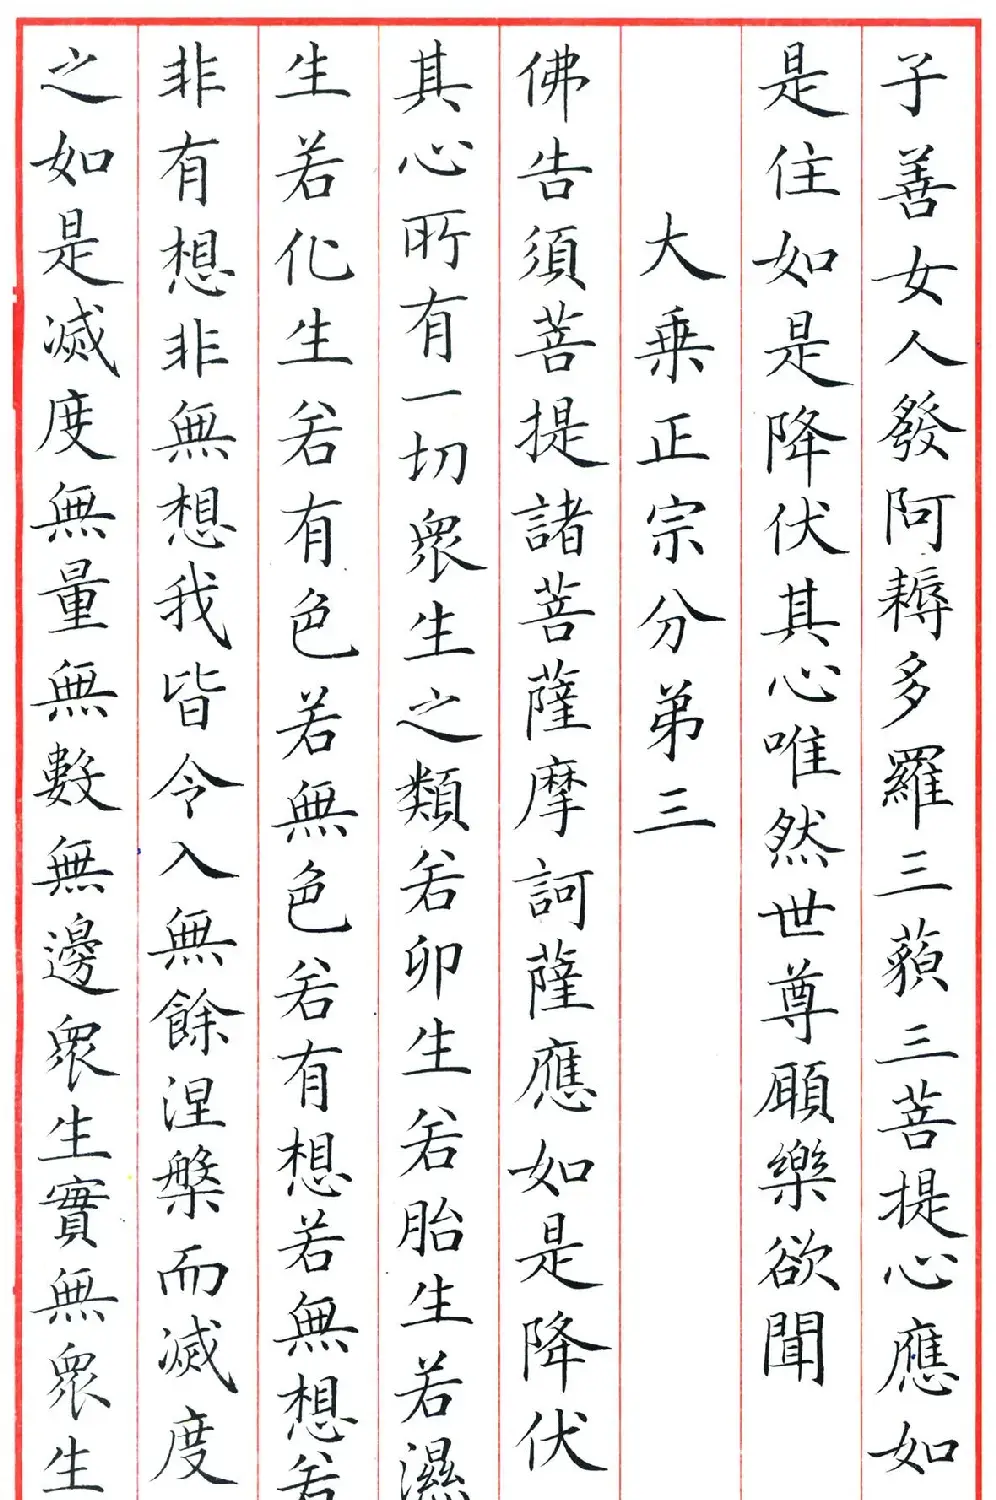 子善女人發阿耨多羅三藐三菩提心應如
是住如是降伏其心唯然世尊願樂欲聞
大乗正宗分弟三
佛告須菩提諸菩薩摩訶薩應如是降伏
其心所有一切衆生之類若卵生若胎生若濕
生若化生若有色若無色若有想若無想若
非有想非無想我皆令入無餘涅槃而滅度
之如是滅度無量無數無邊衆生實無衆生